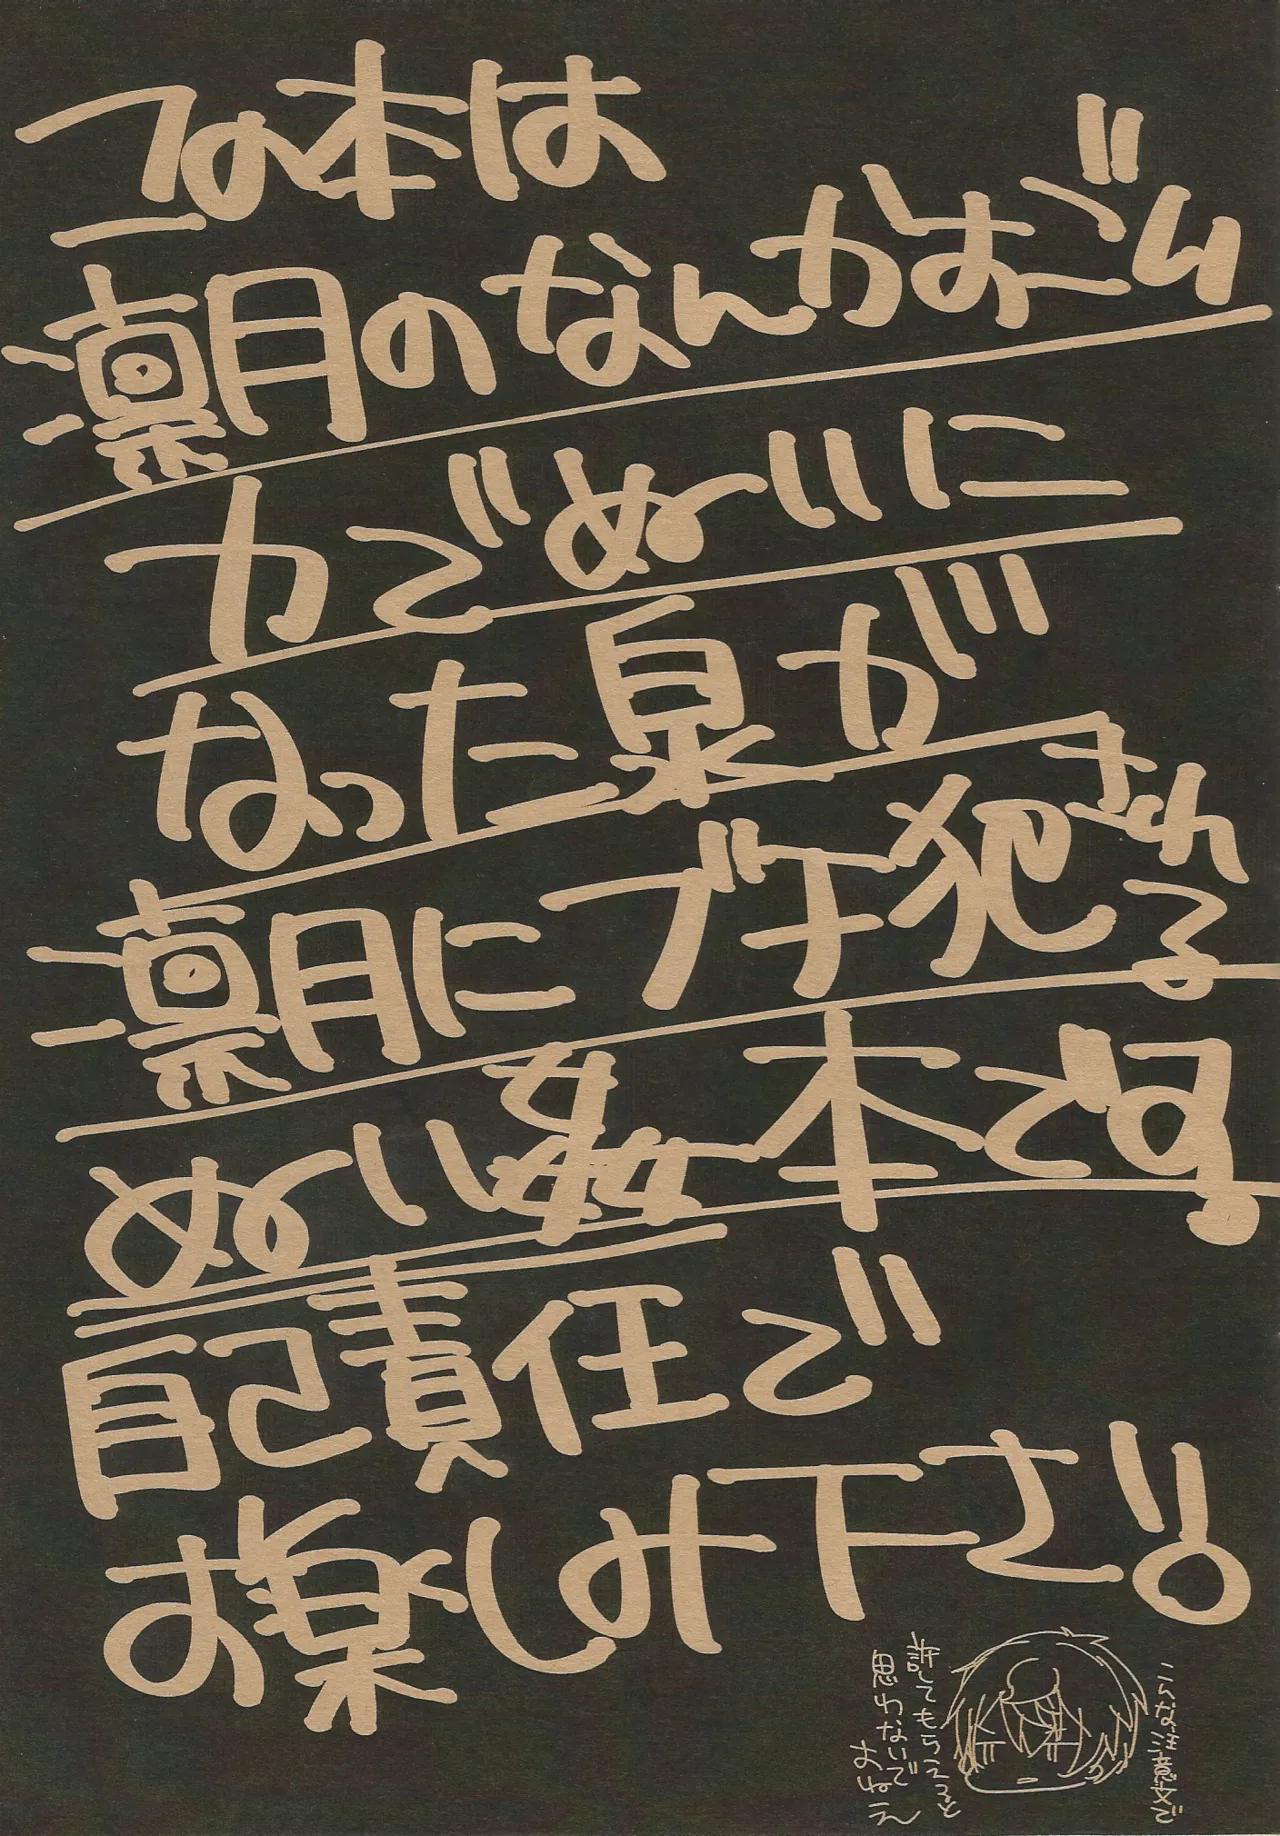 この本は
凛月のなんかよごい
力でぬいに
なった泉が
凛月にブチ犯される
ぬい姦本です。
自己責任で
お楽しみ下さい。
許してもらえると
思わないで
よねえ